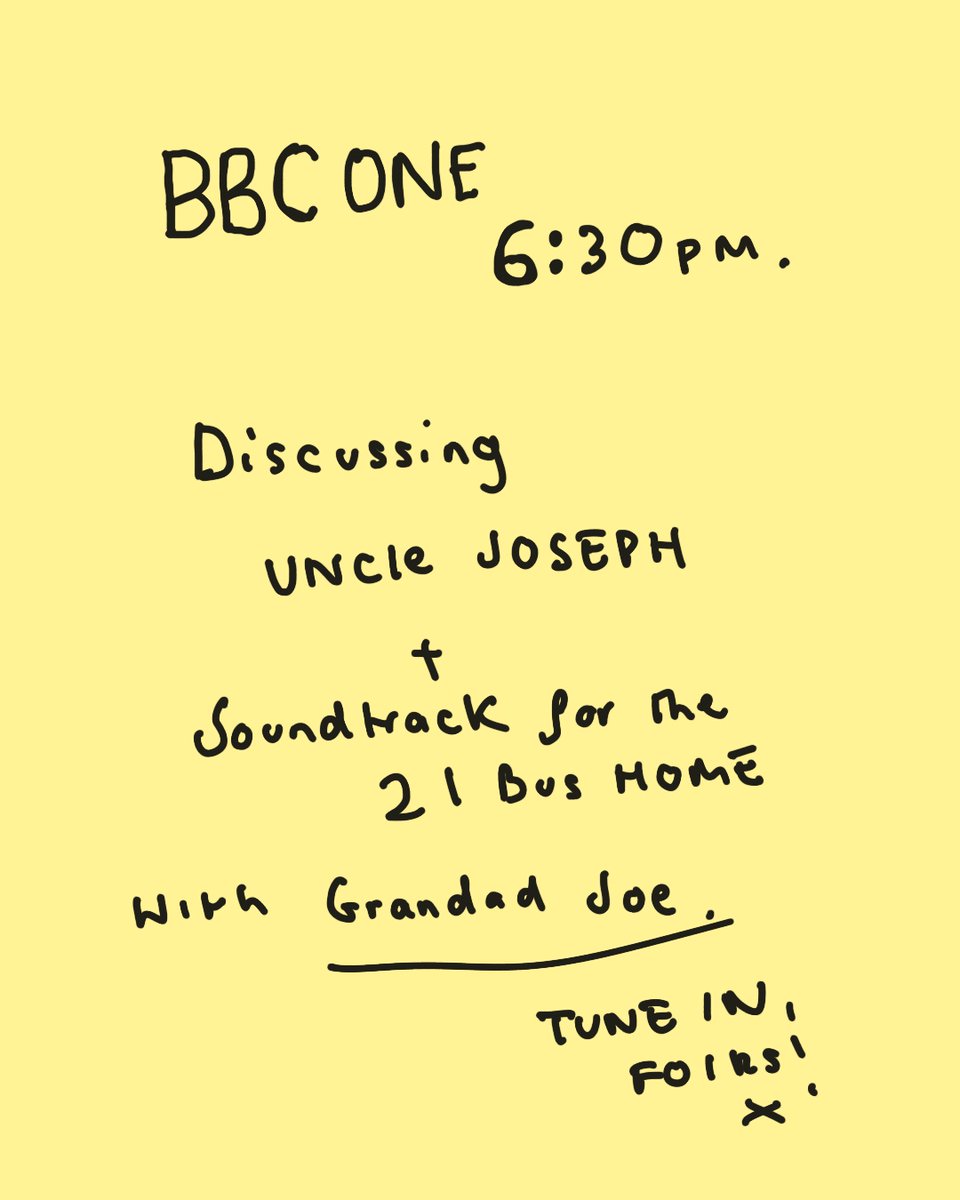 BBC ONE
6:30pm.
Discussing
UNCle JOSEPH
+
Soundtrack for The
21 Bus HOME
With Grandad Joe.
TUNE IN,
FOLKS!
x